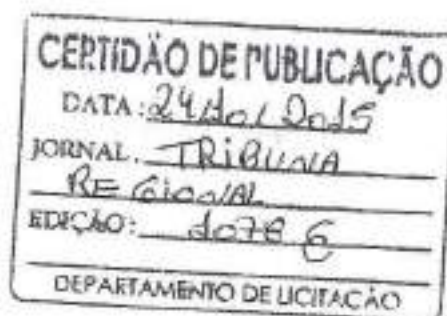 CERTIDÃO DE PUBLICAÇÃO
DATA: 24/10/2015
JORNAL: TRIBUNA
REGIONAL
EDIÇÃO: 1078
DEPARTAMENTO DE LICITAÇÃO